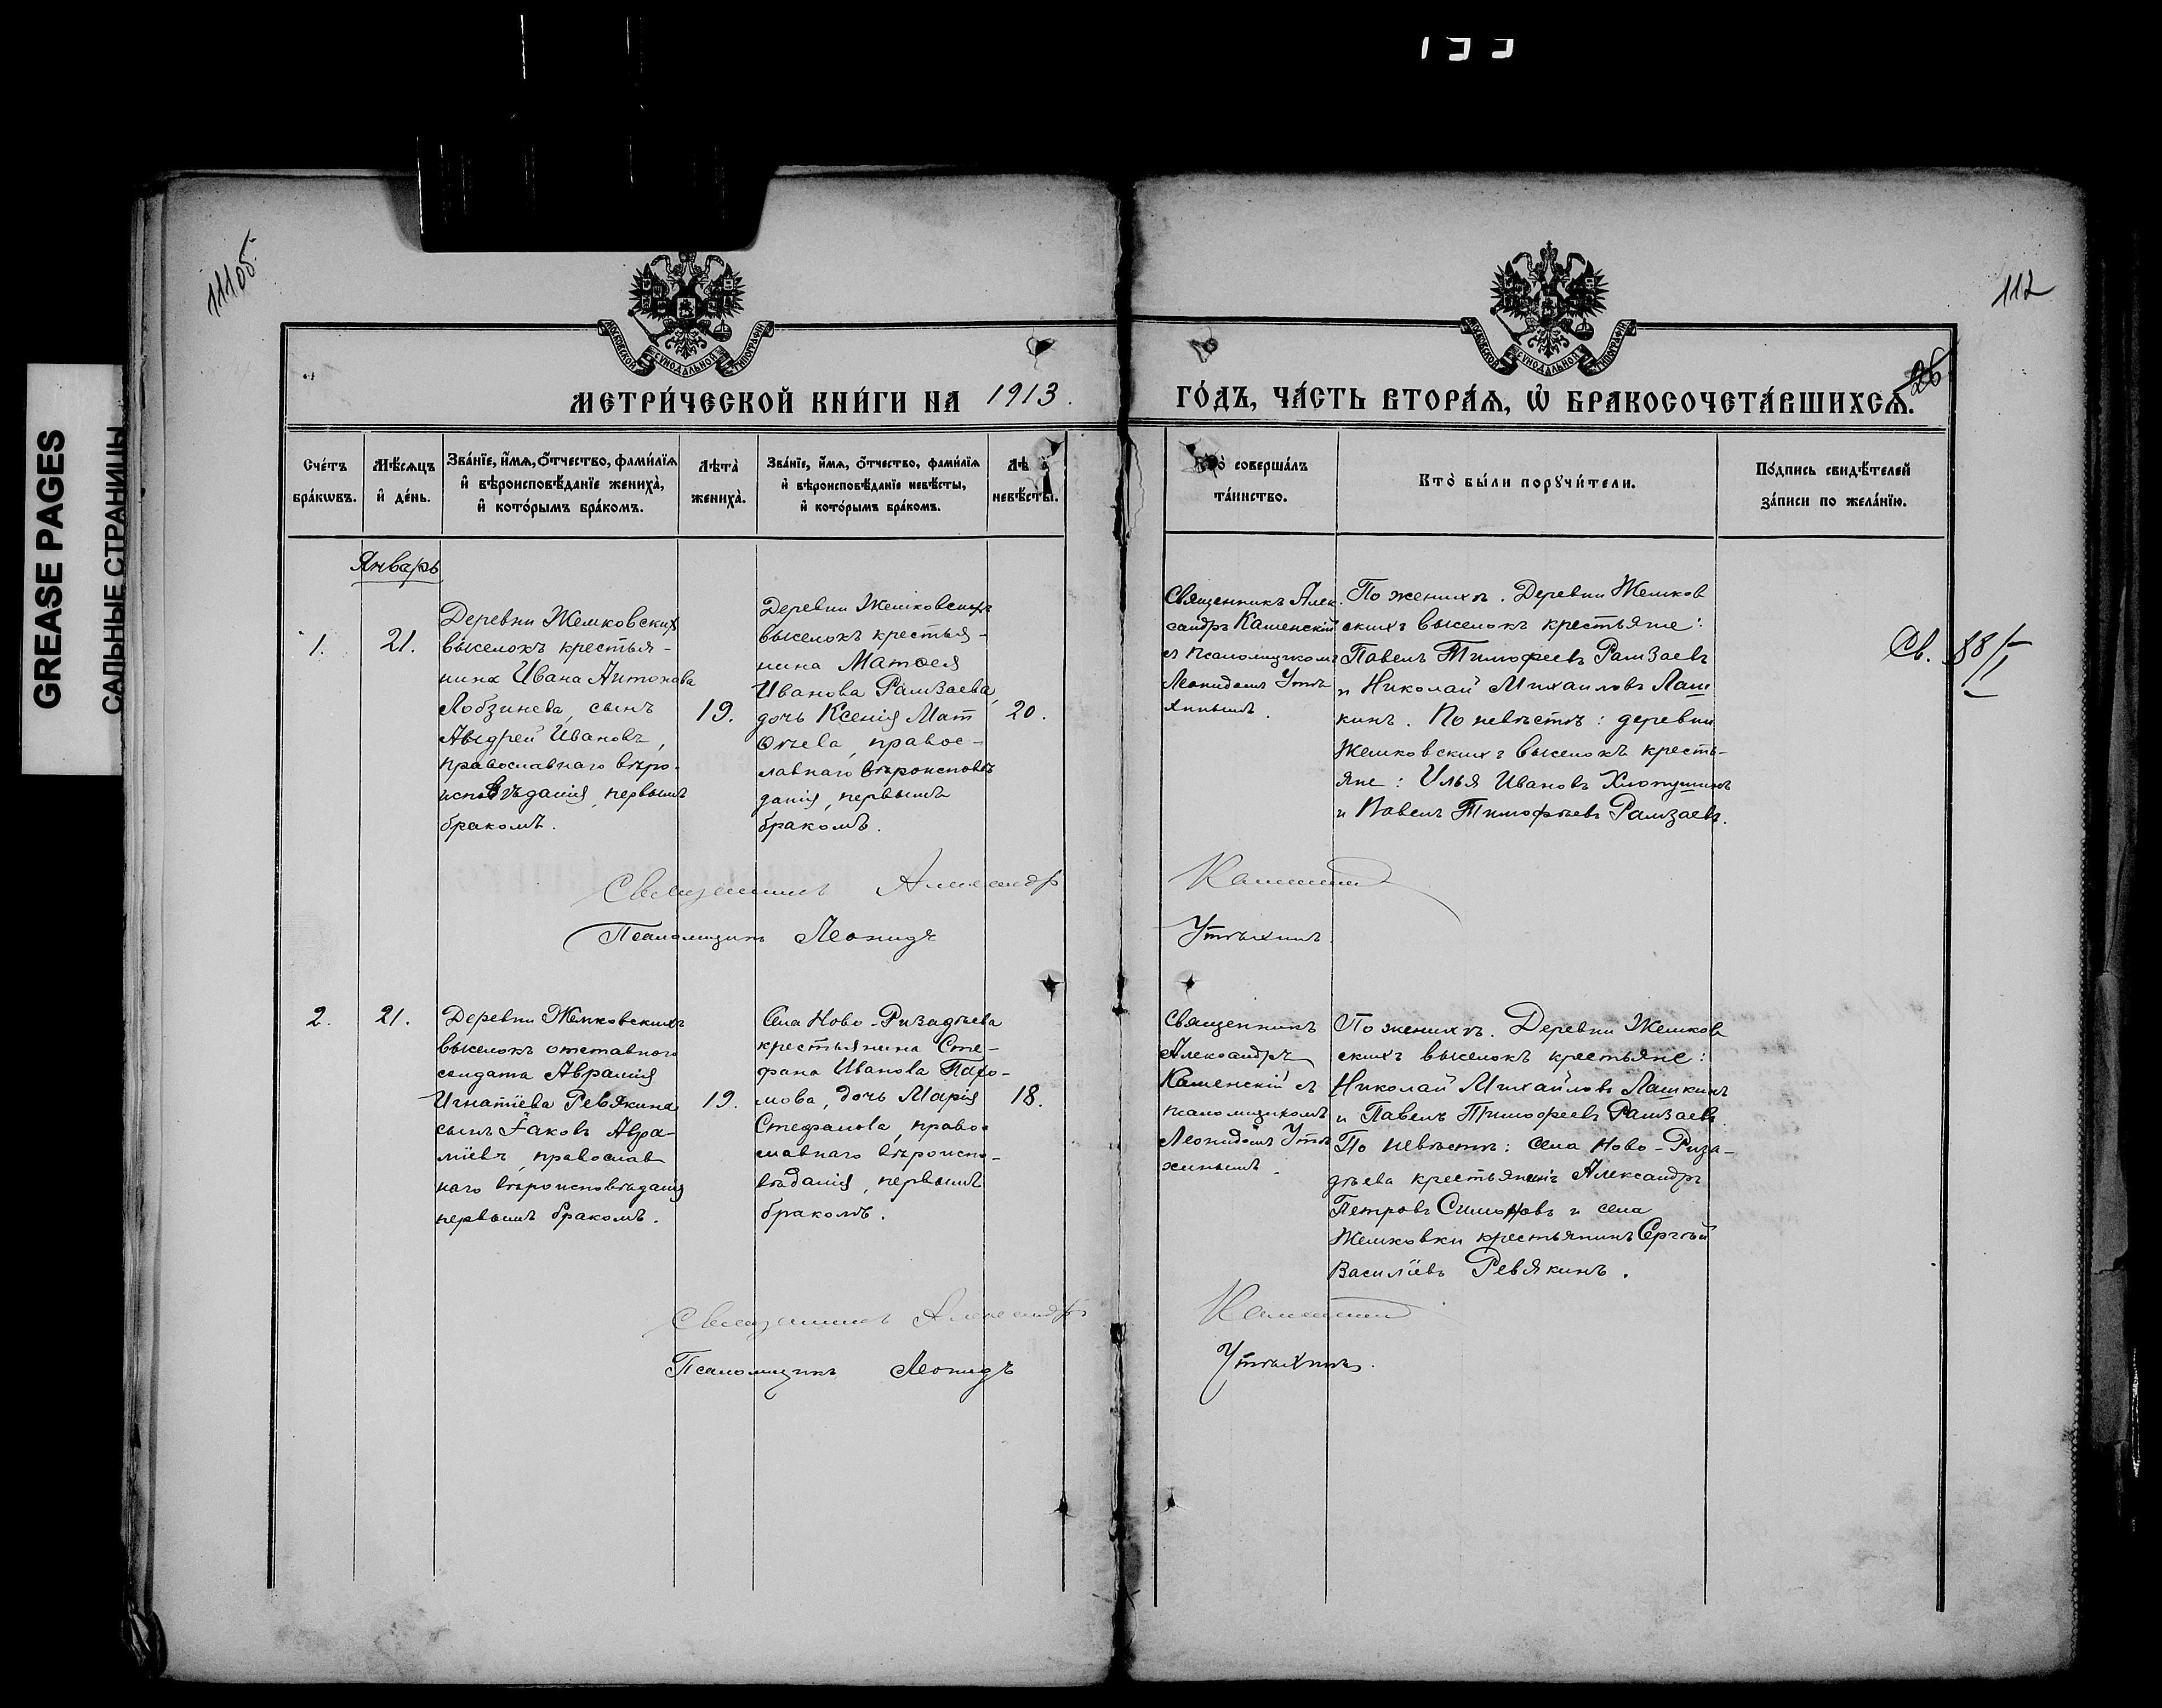 133
GREASE PAGES
САЛЬНЫЕ СТРАНИЦЫ
111об.
112
МОСКОВСКОЙ СѴНОДАЛЬНОЙ ТИПОГРАФІИ
МОСКОВСКОЙ СѴНОДАЛЬНОЙ ТИПОГРАФІИ
26
МЕТРИ́ЧЕСКОЙ КНИ́ГИ НА 1913.
ГО́ДЪ, ЧА́СТЬ ВТОРА́Ѧ, Ѽ БРАКОСОЧЕТА́ВШИХСѦ.
Сче́тъ
бра́кѡвъ.
Мѣ́сѧцъ
и҆ де́нь.
Зва́нїе, и҆́мѧ, ѻ҆́тчество, фами́лїѧ
и҆ вѣроисповѣ́данїе жениха̀,
и҆ кото́рымъ бра́комъ.
Лѣ́та̀
жениха̀.
Зва́нїе, и҆́мѧ, ѻ҆́тчество, фами́лїѧ
и҆ вѣроисповѣ́данїе невѣ́сты,
и҆ кото́рымъ бра́комъ.
невѣ́сты.
соверша́лъ
та́инство.
Кто̀ бы́ли порꙋчи́тели.
По́дпись свидѣ́телей
за́писи по жела́нїю.
Январь
1.
21.
Деревни Жемковскихъ
выселокъ крестья-
нина Ивана Антонова
Лобзинева, сынъ
Андрей Ивановъ,
православнаго вѣро-
исповѣданія, первымъ
бракомъ.
19.
Деревни Жемковскихъ
выселокъ крестья-
нина Матѳея
Иванова Рамзаева,
дочь Ксенія Мат
ѳѣева, правос-
лавнаго вѣроисповѣ
данія, первымъ
бракомъ.
20.
Священникъ Алек
сандръ Каменскій
съ псаломщикомъ
Леонидомъ Утѣ
хинымъ.
По женихѣ. Деревни Жемков
скихъ выселокъ крестьяне:
Павелъ Тимофеевъ Рамзаевъ
и Николай Михаиловъ Лаш
кинъ. По невѣстѣ: деревни
Жемковскихъ выселокъ кресть-
яне: Илья Ивановъ Хлопушинъ
и Павелъ Тимофѣевъ Рамзаевъ.
Св. 88/I
Священникъ Александръ Каменскій
Псаломщикъ Леонидъ Утѣхинъ.
2.
21.
Деревни Жемковскихъ
выселокъ отставного
солдата Аврамія
Игнатіева Ревякина
сынъ Іаковъ Авра-
міевъ, православ
наго вѣроисповѣданія
первымъ бракомъ.
19.
Села Ново-Ризадѣева
крестьянина Сте-
фана Иванова Пахо-
мова, дочь Марія
Стефанова, право-
славнаго вѣроиспо-
вѣданія, первымъ
бракомъ.
18.
Священникъ
Александръ
Каменскій съ
псаломщикомъ
Леонидомъ Утѣ
хинымъ.
По женихѣ. Деревни Жемков
скихъ выселокъ крестьяне:
Николай Михайловъ Лашкинъ
и Павелъ Тимофеевъ Рамзаевъ.
По невѣстѣ: села Ново-Риза-
дѣева крестьянинъ Александръ
Петровъ Симоновъ и села
Жемковки крестьянинъ Сергѣй
Василіевъ Ревякинъ.
Священникъ Александръ Каменскій
Псаломщикъ Леонидъ Утѣхинъ.